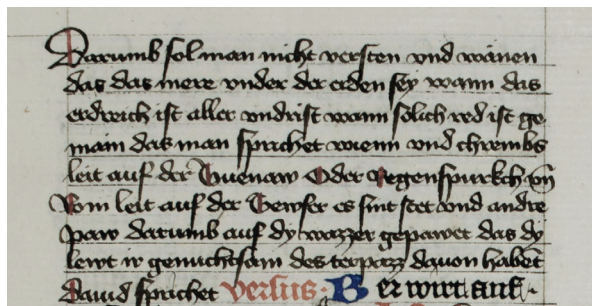 Darumb sol man nicht versten vnd wänen
das das mere vnder der erden sey wann das
erdreich ist aller vndrist wann sölich red ist ge
main das man sprichet wienn vnd chrembs
leit auf der Tuenaw Oder Regenspurkch vn̄
Rom leit auf der Teyfer es sint stet vnd andre
paw darumb auf dy wazzer gepawet das dy
lewt ir genuchtsam des terpazz dauon habent
dauid sprichet versus · Er wirt auf ·